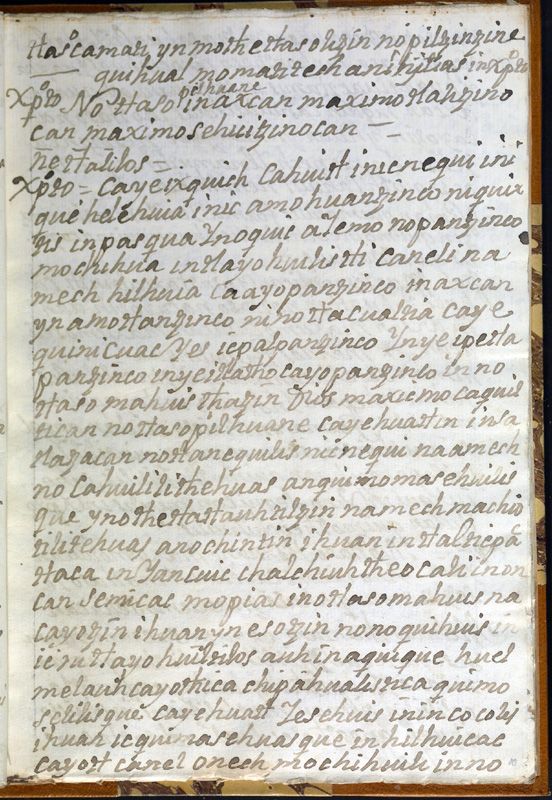 tlasocamati yn mothetlasoltzin nopiltzintzine
quihual momaititech an in xpto
xpto No tlasopilhuane in axcan maximotlaltzino
can maximosehuitzinocan
ne tlatilos =
xpto = Ca ye ixquich Cahuitl inic nequi ini
que helehuia inic amohuantzinco niquix
tis in pasqua Ynoquic aiemo nopantzinco
mochihua in tlayohuilisti Ca nelina
mechilhuia Ca ayopantzinco in axcan
yn amotlantzinco nino tlacualtia Ca ye
quin icuac Yes icpalpantzinco Yn ye ipetla
pantzinco in ye itlathocayopantzinco in no
tlaso mahuisthatzin Dios maximocaquil
tican notlasopilhuane Ca yehuatl in in sa
tlatzacan notlanequilis nicnequi namech
nocahuililithehuas anquimomasehuilis
que ynothetlatlauhtiltzin namechmachio
tilitehuas anochintin ihuan in tlalticpa
tlaca in Yancuic chalchiuhtheocali in on
can Semicac mopias in otlasomahuis na
cayotzin ihuan yn esotzin nonoquihuis in
ic nitlayohuiltilos auh in aquique huel
melauhcayothica chipahualistica quimo
selilisque Ca yehuatl Yes chuis inincocolis
ihuan ic quimasehuasque in hilhuicac
cayotl Ca nel onech mochihuili in no